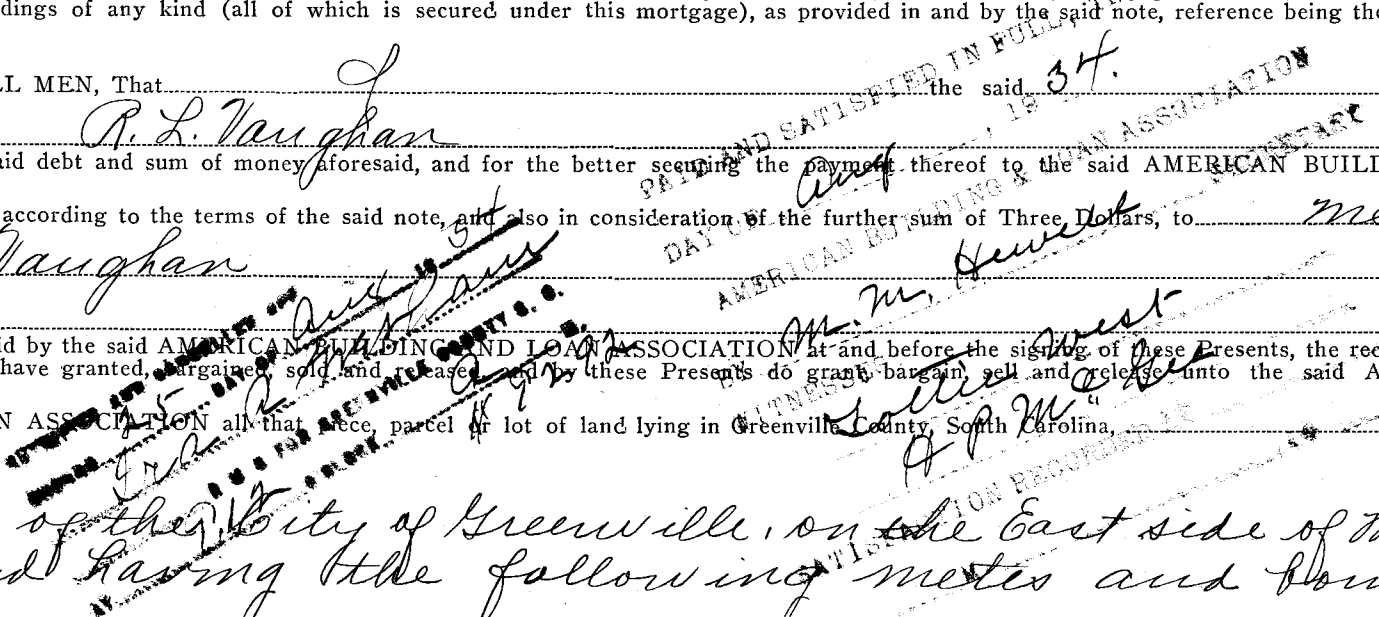 dings of any kind (all of which is secured under this mortgage), as provided in and by the said note, reference being the
LL MEN, That I the said
R. L. Vaughan
aid debt and sum of money aforesaid, and for the better securing the payment thereof to the said AMERICAN BUILD
according to the terms of the said note, and also in consideration of the further sum of Three Dollars, to me
Vaughan
id by the said AMERICAN BUILDING AND LOAN ASSOCIATION at and before the signing of these Presents, the rec
have granted, bargained, sold and released and by these Presents do grant, bargain, sell and release unto the said A
N ASSOCIATION all that piece, parcel or lot of land lying in Greenville County, South Carolina,
of the City of Greenville, on the East side of
having the following metes and boun
PAID AND SATISFIED IN FULL,
DAY OF Aug, 19 34.
AMERICAN BUILDING & LOAN ASSOCIATION
M. M. Hewett SECRETARY
WITNESSES
Lottie West
H P McGee
SATISFACTION RECORDED
SATISFIED AND CANCELLED OF
25 DAY OF Aug 19 34
R M C FOR GREENVILLE COUNTY S. C.
AT O'CLOCK M. # 9292